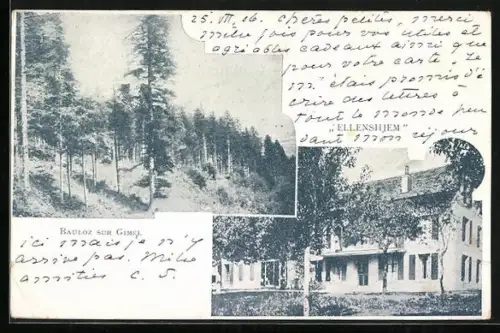 25. VII. 06. Chères petites, merci
mille fois pour vos utiles et
agréables cadeaux ainsi que
pour votre carte. Je
m'étais promis d'é
crire des lettres à
tout le monde pen
dant mon séjour
"ELLENSHJEM"
BAULOZ SUR GIMEL
ici mais je n'y
arrive pas. Mille
amitiés C. S.